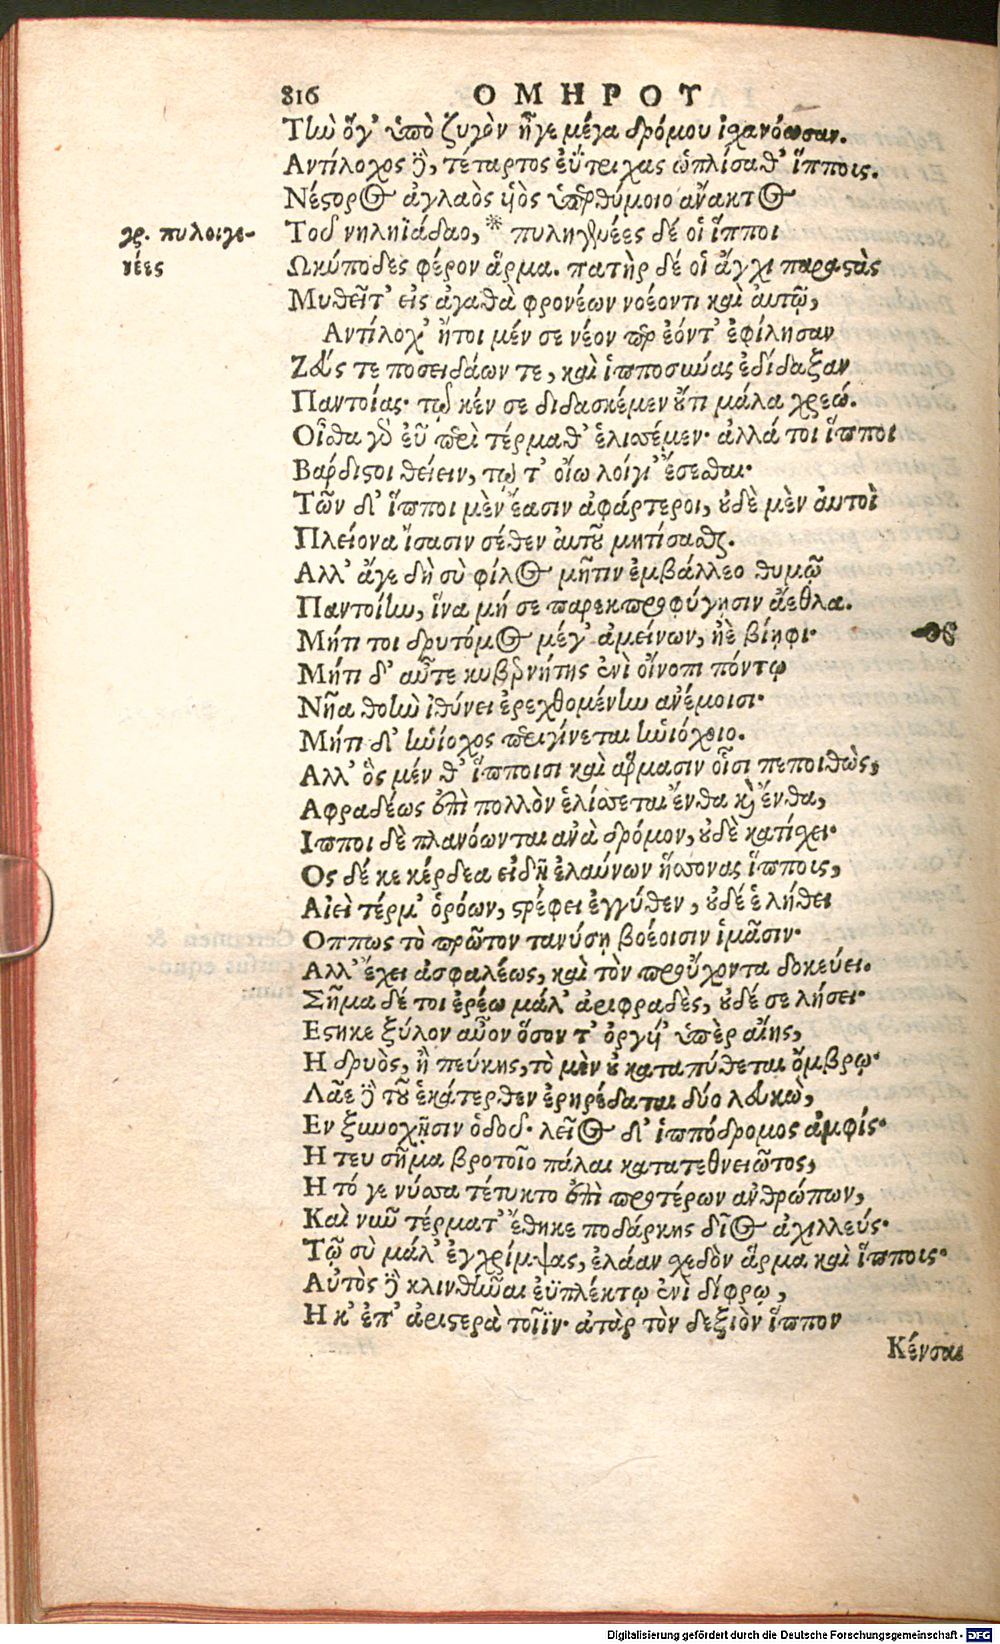 816 ΟΜΗΡΟΥ
Τὴν ὅγ' ὑπὸ ζυγὸν ἦγε μέγα δρόμου ἰχανόωσαν.
Αντίλοχος δὲ, τέταρτος ἐΰτριχας ὡπλίσαθ' ἵππους.
Νέστορος ἀγλαὸς υἱὸς ὑπερθύμοιο ἄνακτος
Τοῦ νηληϊάδαο, * πυληγενέες δέ οἱ ἵπποι
γρ. πυλοιγε-
νέες
Ωκύποδες φέρον ἅρμα. πατὴρ δέ οἱ ἄγχι παραστὰς
Μυθεῖτ' εἰς ἀγαθὰ φρονέων νοέοντι καὶ αὐτῷ,
Αντίλοχ' ἤτοι μέν σε νέον περ ἐόντ' ἐφίλησαν
Ζεύς τε ποσειδάων τε, καὶ ἱπποσύνας ἐδίδαξαν
Παντοίας· τῷ κέν σε διδασκέμεν οὔτι μάλα χρεώ.
Οἶσθα γὰρ εὖ περὶ τέρμαθ' ἑλισσέμεν· ἀλλά τοι ἵπποι
Βάρδιστοι θείειν, τῷ τ' οἴω λοίγι' ἔσεσθαι·
Τῶν δ' ἵπποι μὲν ἔασιν ἀφάρτεροι, οὐδὲ μὲν αὐτοὶ
Πλείονα ἴσασιν σέθεν αὐτοῦ μητίσασθαι.
Αλλ' ἄγε δὴ σὺ φίλος μῆτιν ἐμβάλλεο θυμῷ
Παντοίην, ἵνα μή σε παρεκπροφύγησιν ἄεθλα.
Μήτι τοι δρυτόμος μέγ' ἀμείνων, ἠὲ βίηφι·
Μήτι δ' αὖτε κυβερνήτης ἐνὶ οἴνοπι πόντῳ
Νῆα θοὴν ἰθύνει ἐρεχθομένην ἀνέμοισι·
Μήτι δ' ἡνίοχος περιγίνεται ἡνιόχοιο.
Αλλ' ὃς μέν θ' ἵπποισι καὶ ἅρμασιν οἷσι πεποιθὼς,
Αφραδέως ἐπὶ πολλὸν ἑλίσσεται ἔνθα καὶ ἔνθα,
Ιπποι δὲ πλανόωνται ἀνὰ δρόμον, οὐδὲ κατίχει·
Ος δέ κε κέρδεα εἰδῇ ἐλαύνων ἥσσονας ἵππους,
Αἰεὶ τέρμ' ὁρόων, στρέφει ἐγγύθεν, οὐδέ ἑ λήθει
Οππως τὸ πρῶτον τανύσῃ βοέοισιν ἱμᾶσιν·
Αλλ' ἔχει ἀσφαλέως, καὶ τὸν προὔχοντα δοκεύει.
Σῆμα δέ τοι ἐρέω μάλ' ἀριφραδὲς, οὐδέ σε λήσει·
Εστηκε ξύλον αὖον ὅσον τ' ὀργυι' ὑπὲρ αἴης,
Η δρυὸς, ἢ πεύκης, τὸ μὲν οὐ καταπύθεται ὄμβρῳ·
Λᾶε δὲ τοῦ ἑκάτερθεν ἐρηρέδαται δύο λευκὼ,
Εν ξυνοχῇσιν ὁδοῦ· λεῖος δ' ἱππόδρομος ἀμφίς·
Η τευ σῆμα βροτοῖο πάλαι κατατεθνειῶτος,
Η τό γε νύσσα τέτυκτο ἐπὶ προτέρων ἀνθρώπων,
Καὶ νῦν τέρματ' ἔθηκε ποδάρκης δῖος ἀχιλλεύς·
Τῷ σὺ μάλ' ἐγχρίμψας, ἐλάαν σχεδὸν ἅρμα καὶ ἵππους·
Αὐτὸς δὲ κλινθῆναι ἐϋπλέκτῳ ἐνὶ δίφρῳ,
Η κ' ἐπ' ἀριστερὰ τοῖϊν· ἀτὰρ τὸν δεξιὸν ἵππον
Κένσαι
Digitalisierung gefördert durch die Deutsche Forschungsgemeinschaft - DFG